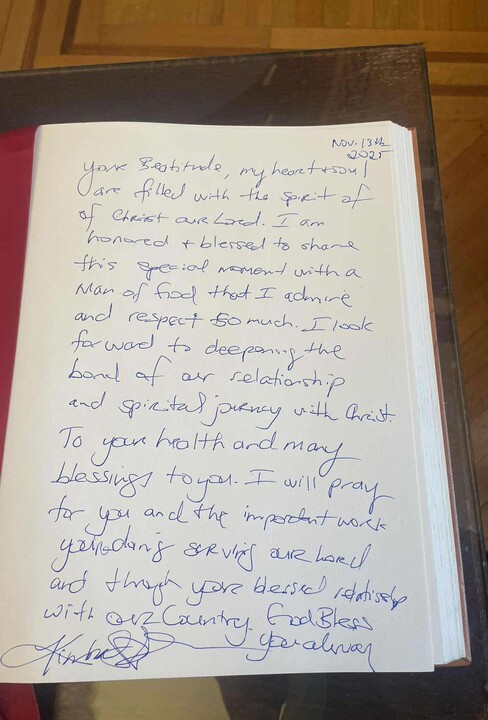 Nov. 13th
2025
Your Beatitude, my heart + soul
are filled with the spirit of
of Christ our Lord. I am
honored + blessed to share
this special moment with a
Man of God that I admire
and respect so much. I look
forward to deepening the
bond of our relationship
and spirital journey with Christ.
To your health and many
blessings to you. I will pray
for you and the important work
you doing serving our Lord
and through your blessed relatiship
with our Country. God Bless
you always